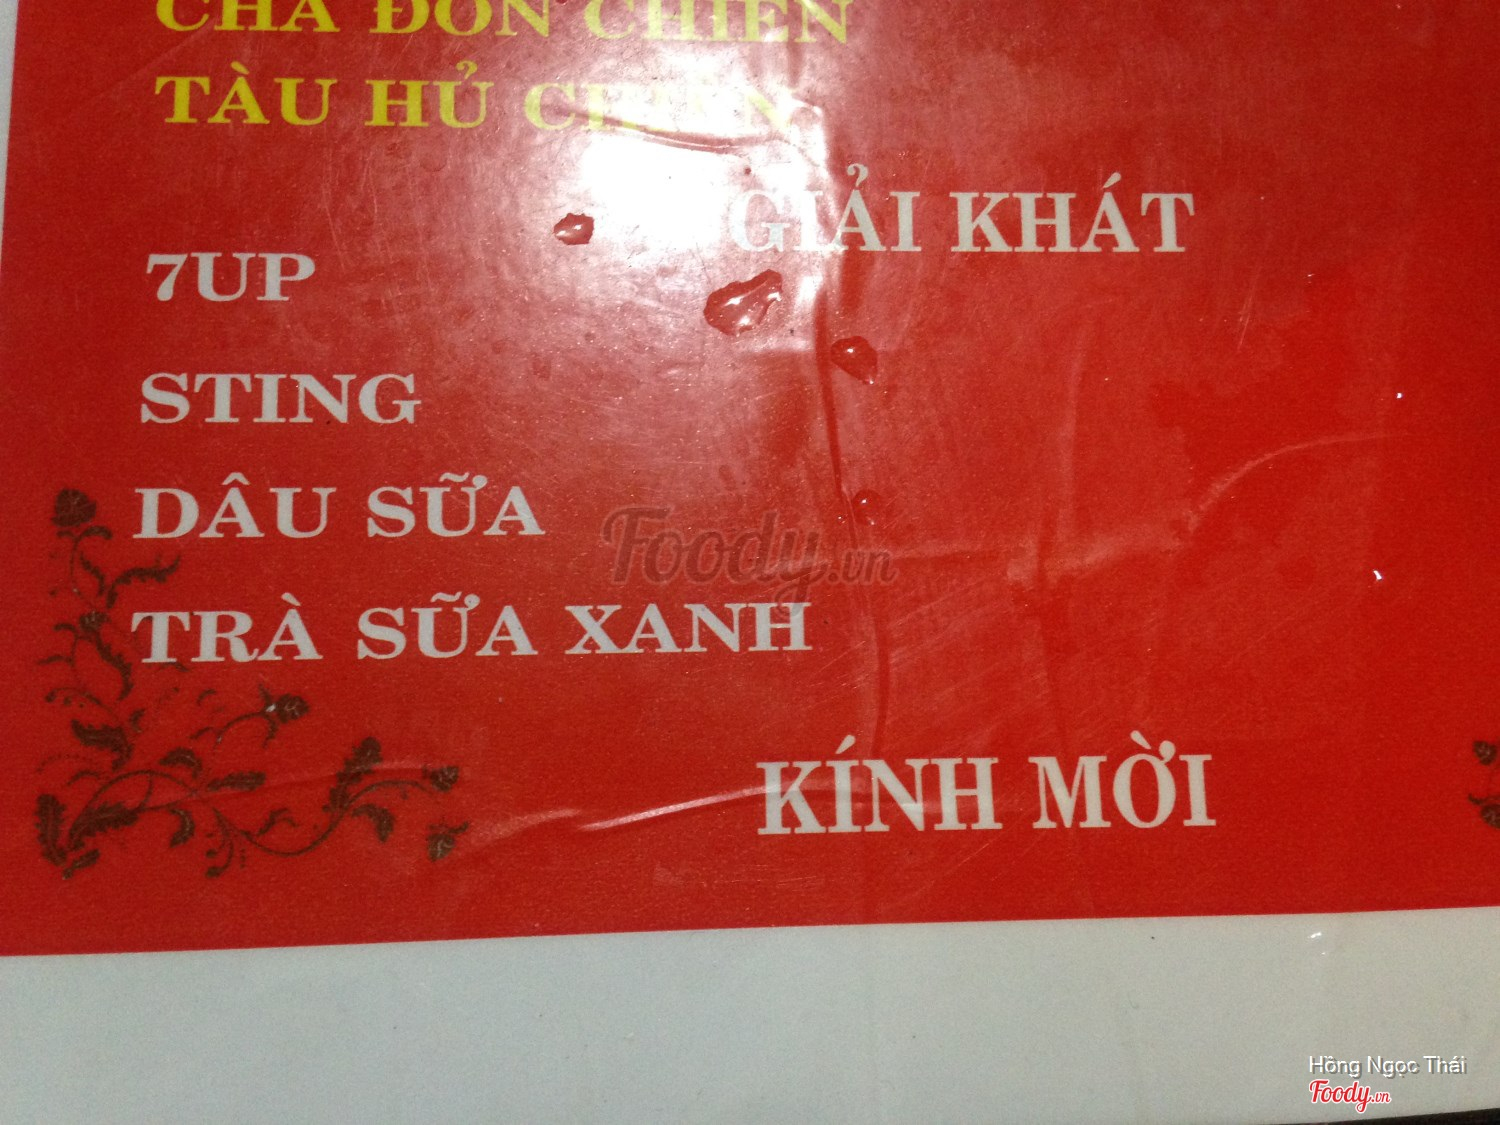 CHẢ ĐÒN CHIÊN
TÀU HỦ CHIÊN
GIẢI KHÁT
7UP
STING
DÂU SỮA
TRÀ SỮA XANH
KÍNH MỜI
Foody.vn
Hồng Ngọc Thái
Foody.vn